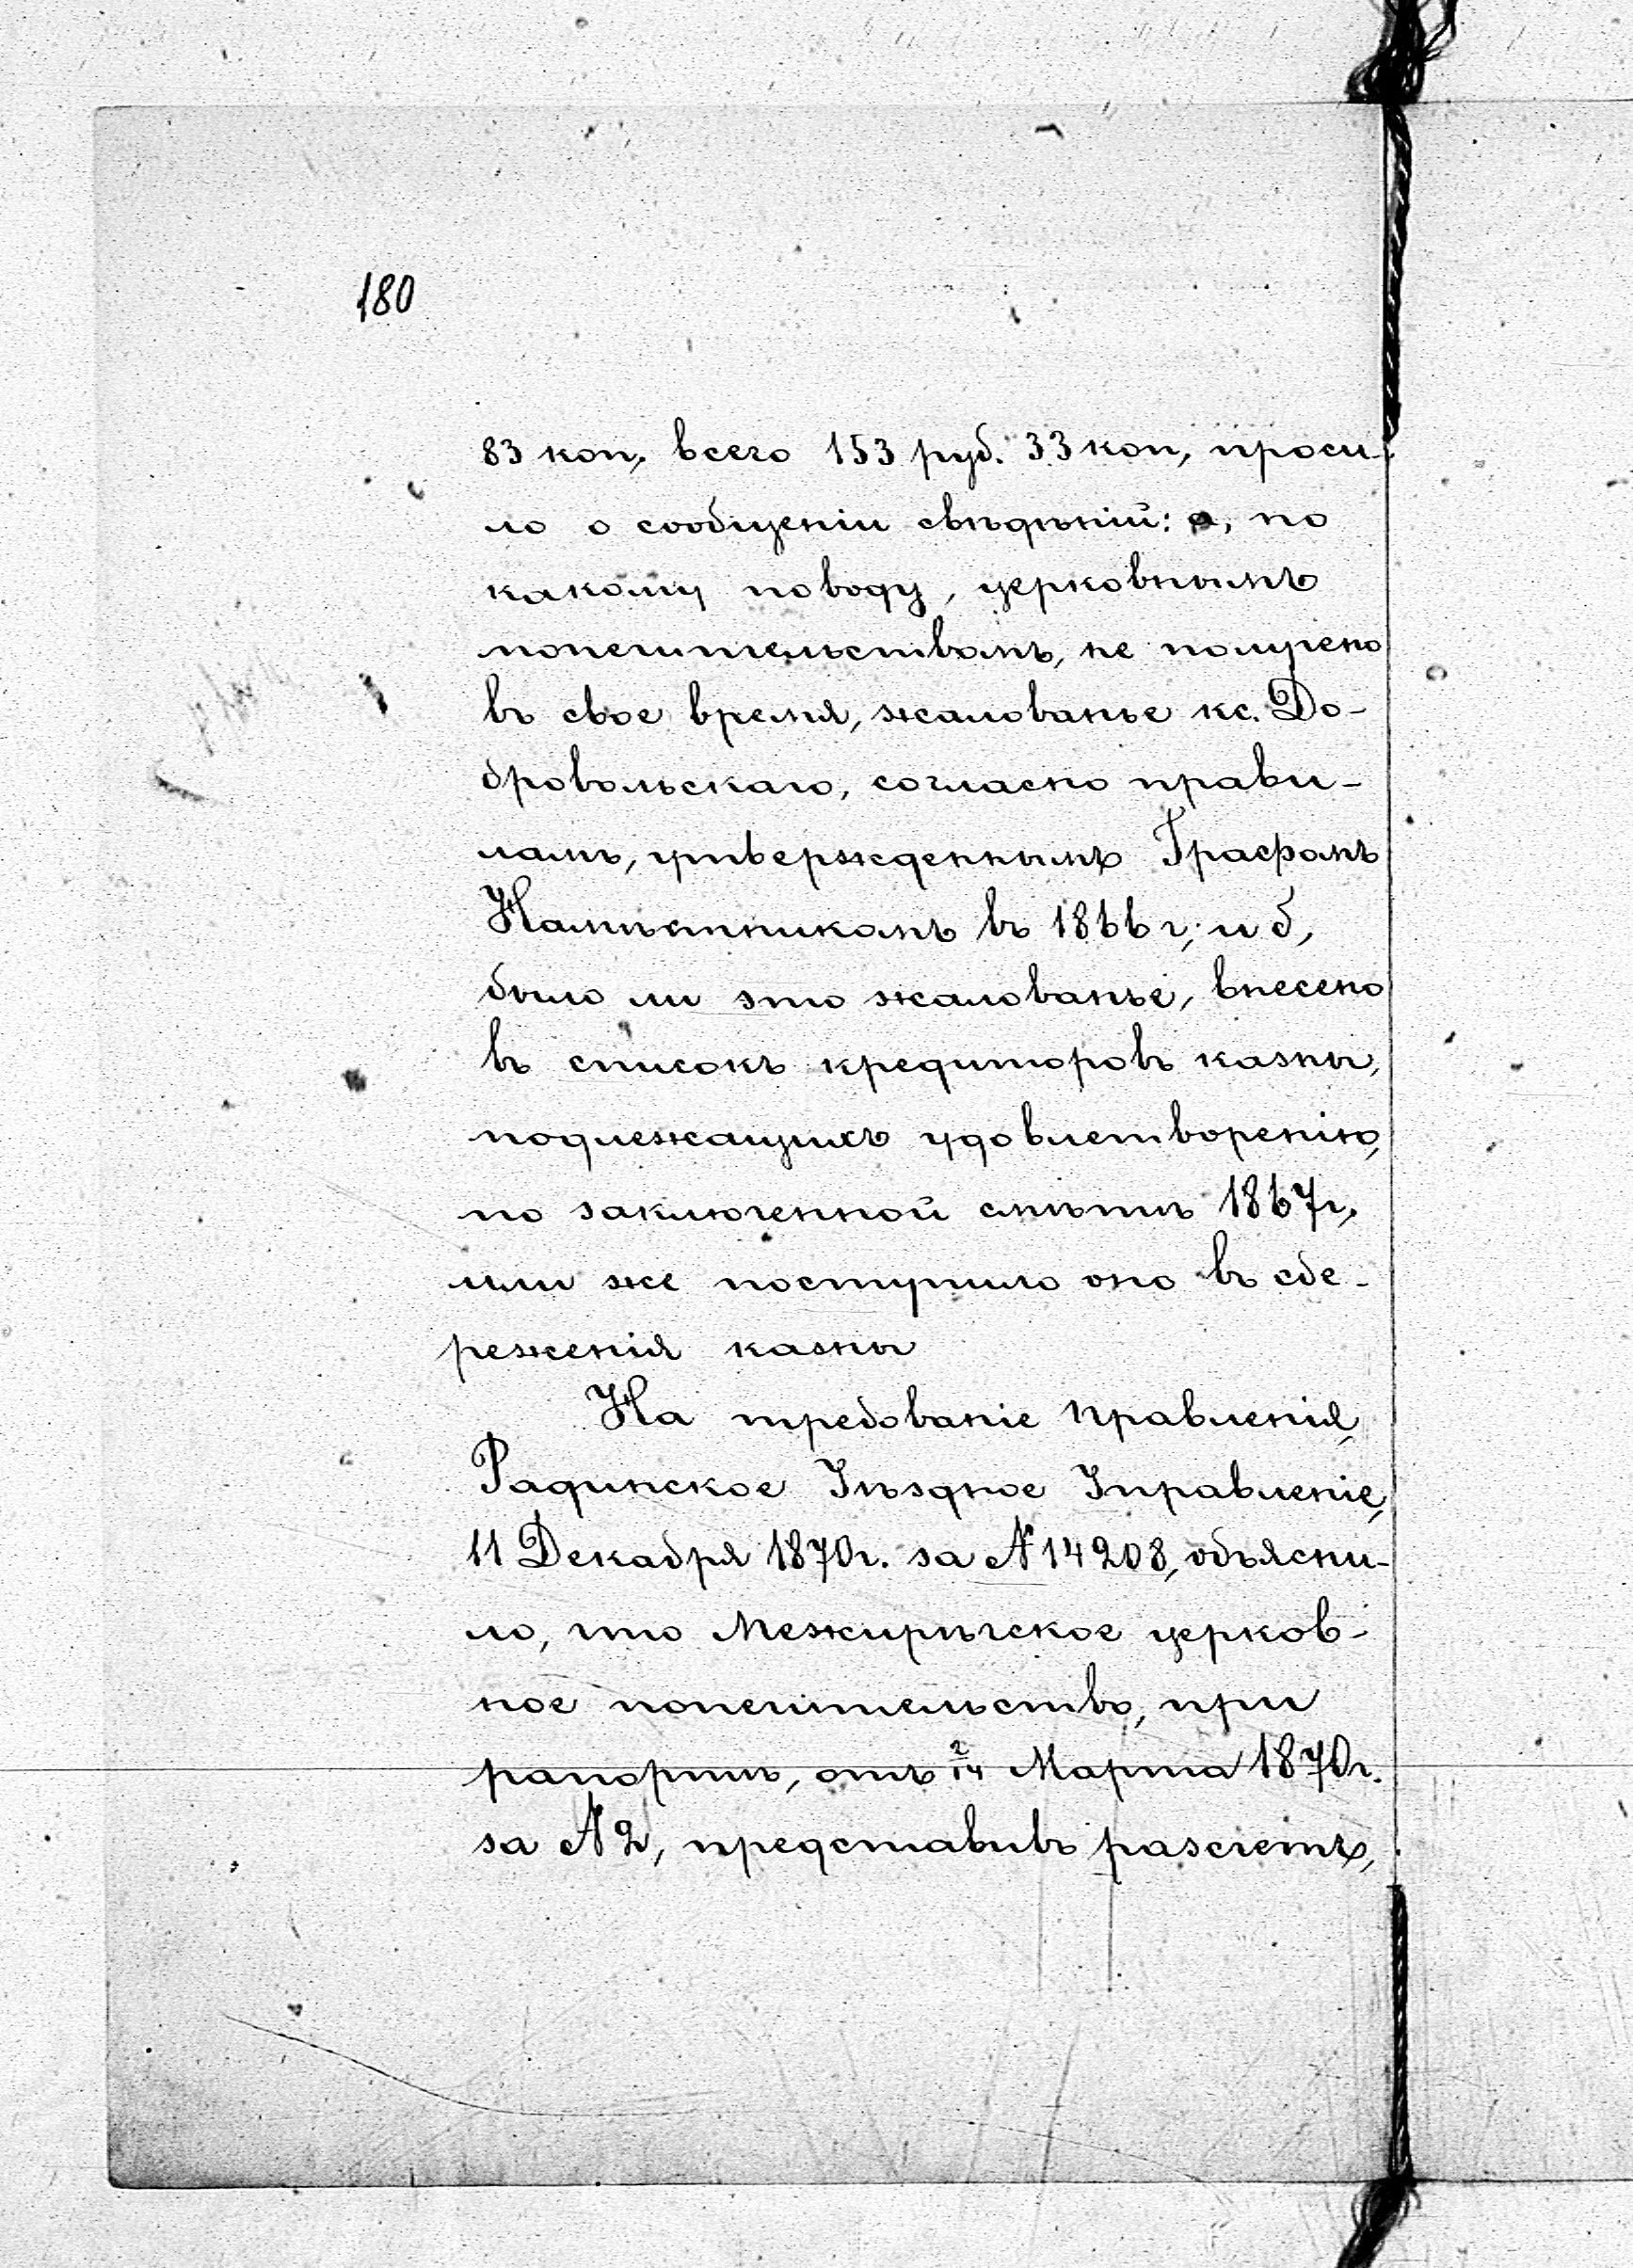 180
83 коп, всего 153 руб. 33 коп, проси-
ло о сообщеніи свѣдѣній: а, по
какому поводу, церковнымъ
попечительствомъ, не получено
въ свое время, жалованье кс. До-
бровольскаго, согласно прави-
ламъ, утвержденнымъ Графомъ
Намѣстникомъ въ 1866 г; и б,
было ли это жалованье, внесено
въ списокъ кредиторовъ казны,
подлежащихъ удовлетворенію,
по заключенной смѣтѣ 1867 г,
или же поступило оно въ сбе-
реженія казны
На требованіе правленія,
Радинское Уѣздное Управленіе,
11 Декабря 1870 г. за № 14208, объясни-
ло, что Межирѣчское церков-
ное попечительство, при
рапортѣ, отъ 2/14 Марта 1870 г.
за № 2, представивъ разсчетъ,